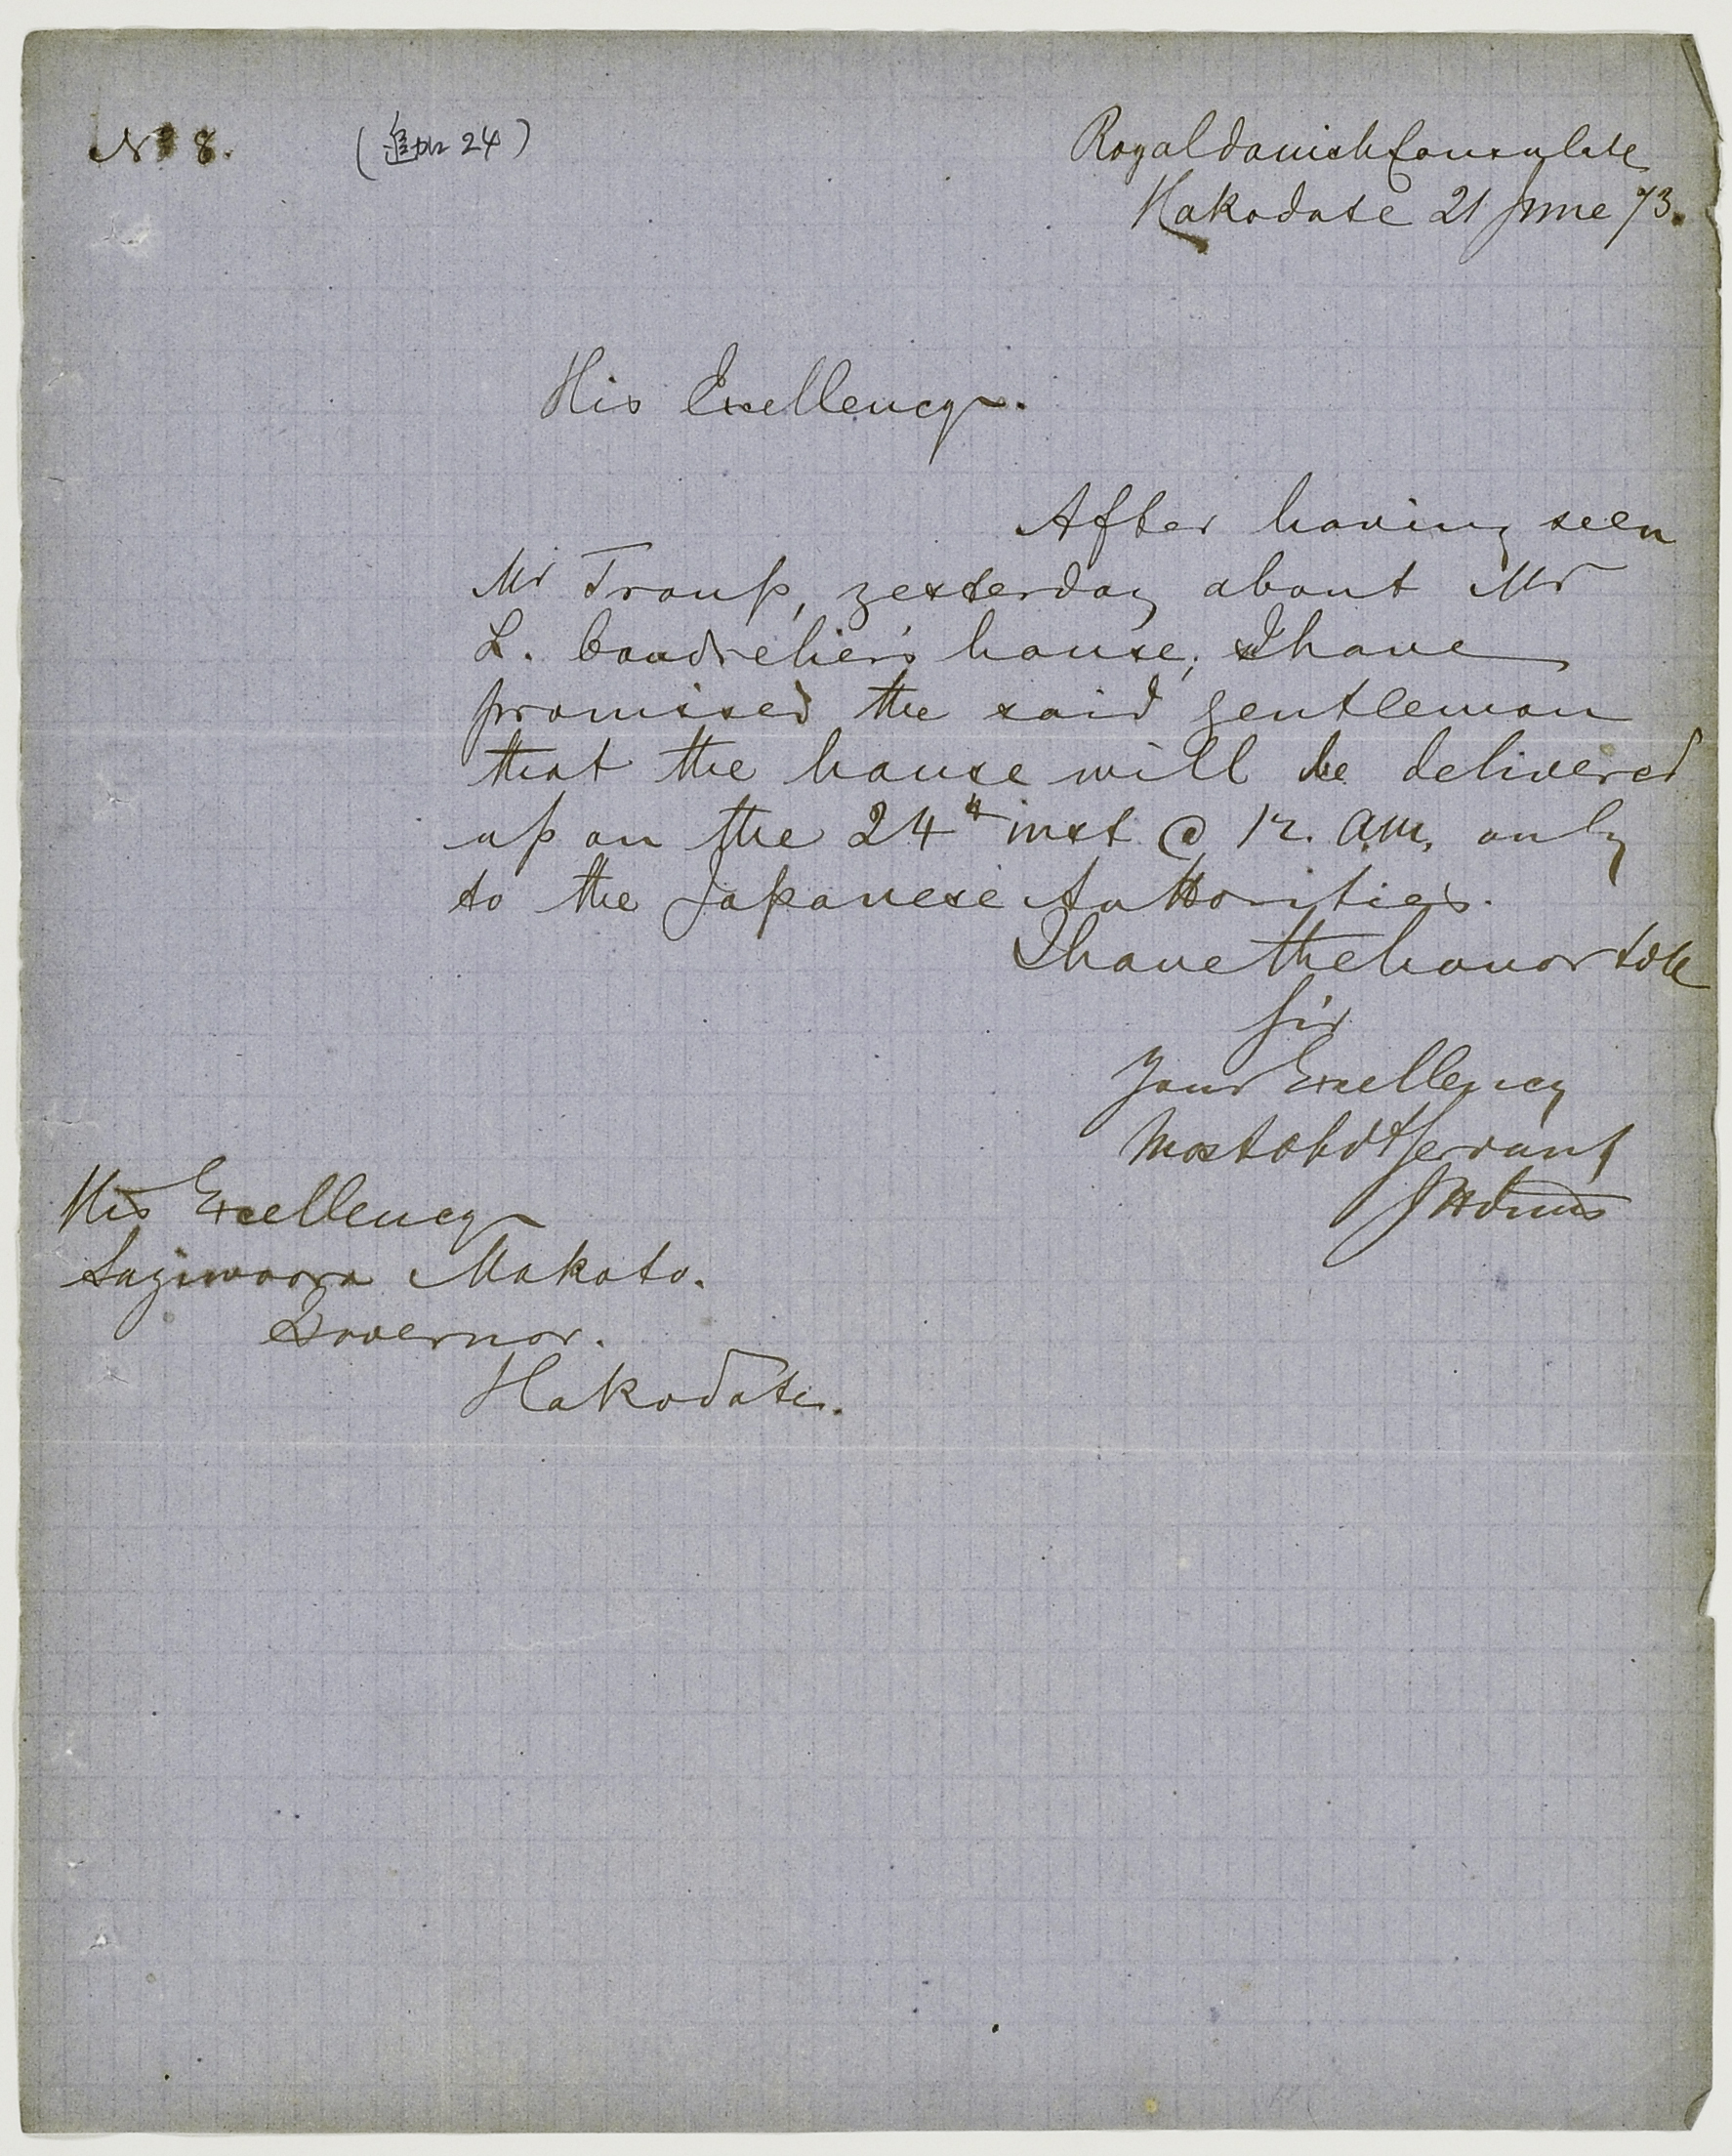 No 8. (追加 24)
Royal danish Consulate
Hakodate 21 June 73.
His Excellency.
After having seen
Mr Troup, yesterday about Mr
L. house, I have
promissed the said gentleman
that the house will be delivered
up on the 24th inst @ 12. a.m. only
to the Japanese Authorities.
I have the honor to be
Sir
Your Excellency
Most obdt Servant
His Excellency
Sugiwoora Makoto.
Governor.
Hakodate.